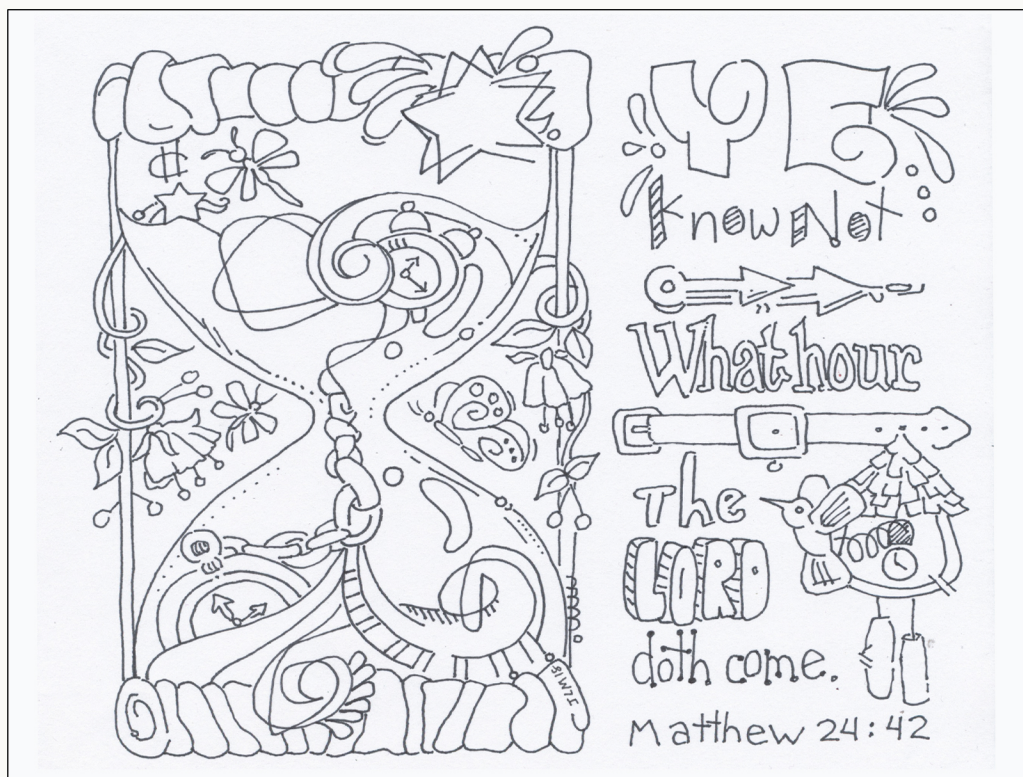 YE
Know Not
What hour
The
LORD
doth come.
Matthew 24:42